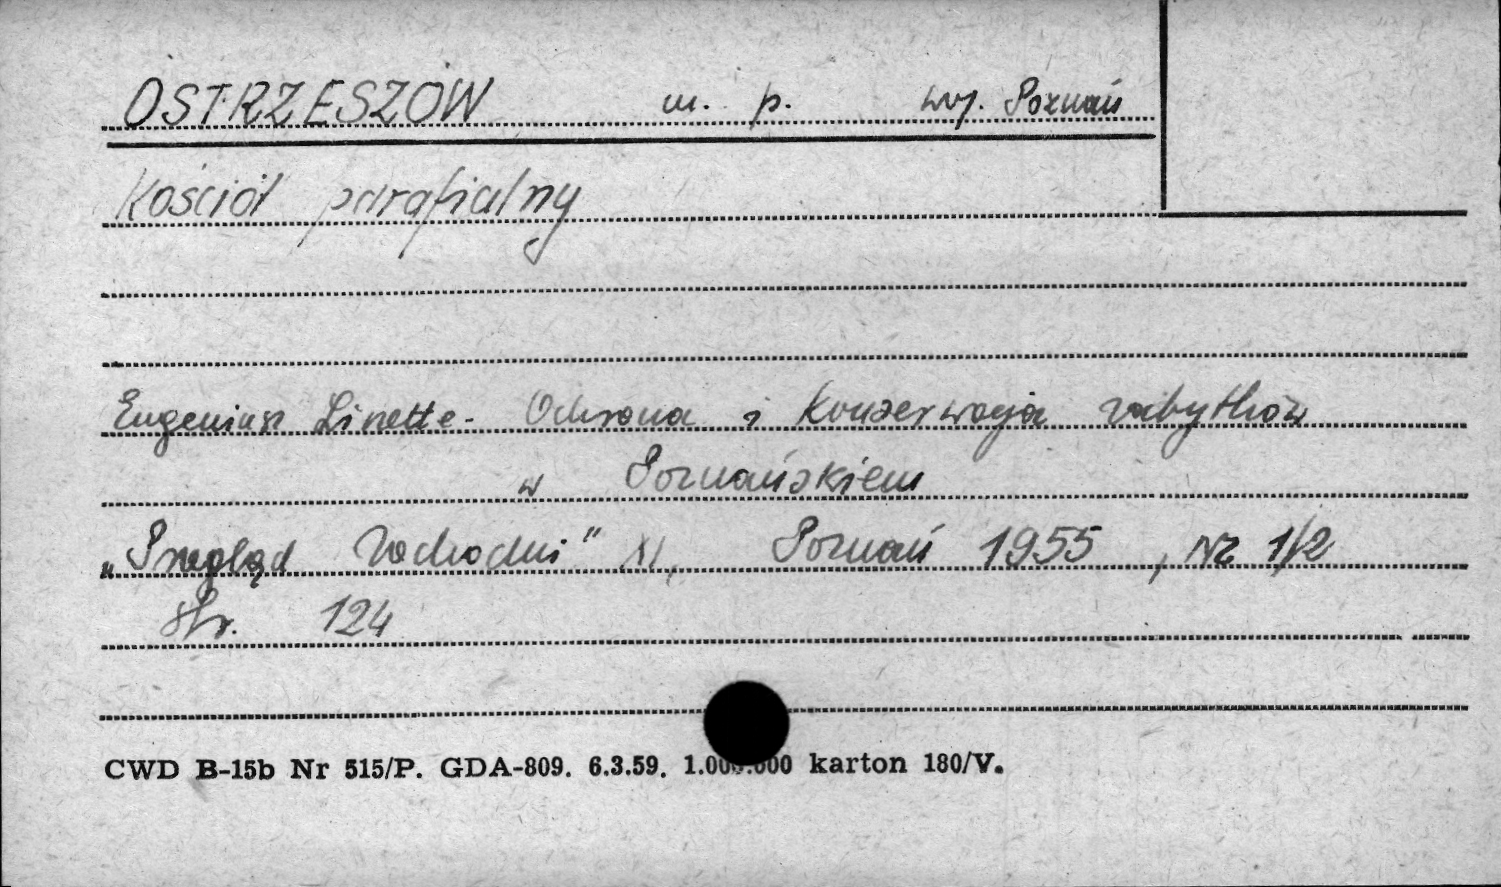 OSTRZESZÓW m. p. woj. Poznań
Kościół parafialny
Eugeniusz Linette - Ochrona i Konserwacja zabytków
w Poznańskiem
„Przegląd Zachodni" XI, Poznań 1955, Nr 1/2
str. 124
CWD B-15b Nr 515/P. GDA-809. 6.3.59. 1.000.000 karton 180/V.